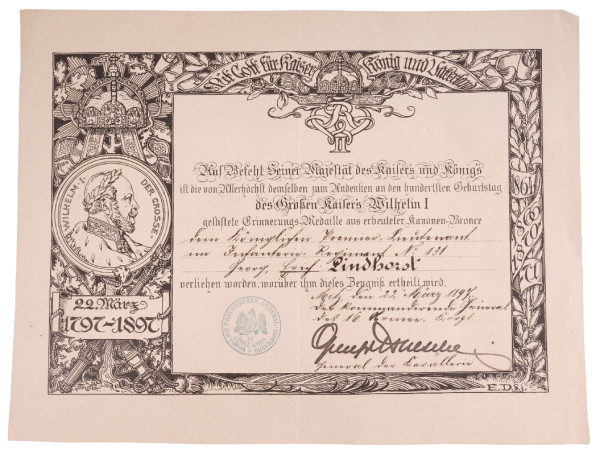 Mit Gott für Kaiser König und Vaterland
WILHELM I. DER GROSSE
WR
II
Auf Befehl Seiner Majestät des Kaisers und Königs
ist die von Allerhöchst demselben zum Andenken an den hundertsten Geburtstag
des Großen Kaisers Wilhelm I
gestiftete Erinnerungs-Medaille aus erbeuteter Kanonen-Bronce
dem Königlichen Premier-Lieutenant
im Infanterie-Regiment No 131
Georg Lindhorst
verliehen worden, worüber ihm dieses Zeugniß ertheilt wird.
Metz, den 22. März 1897.
Der Kommandirende General
des 16 Armee-Korps.
General der Kavallerie
22. März
1797-1897
1864
1866
1870
71